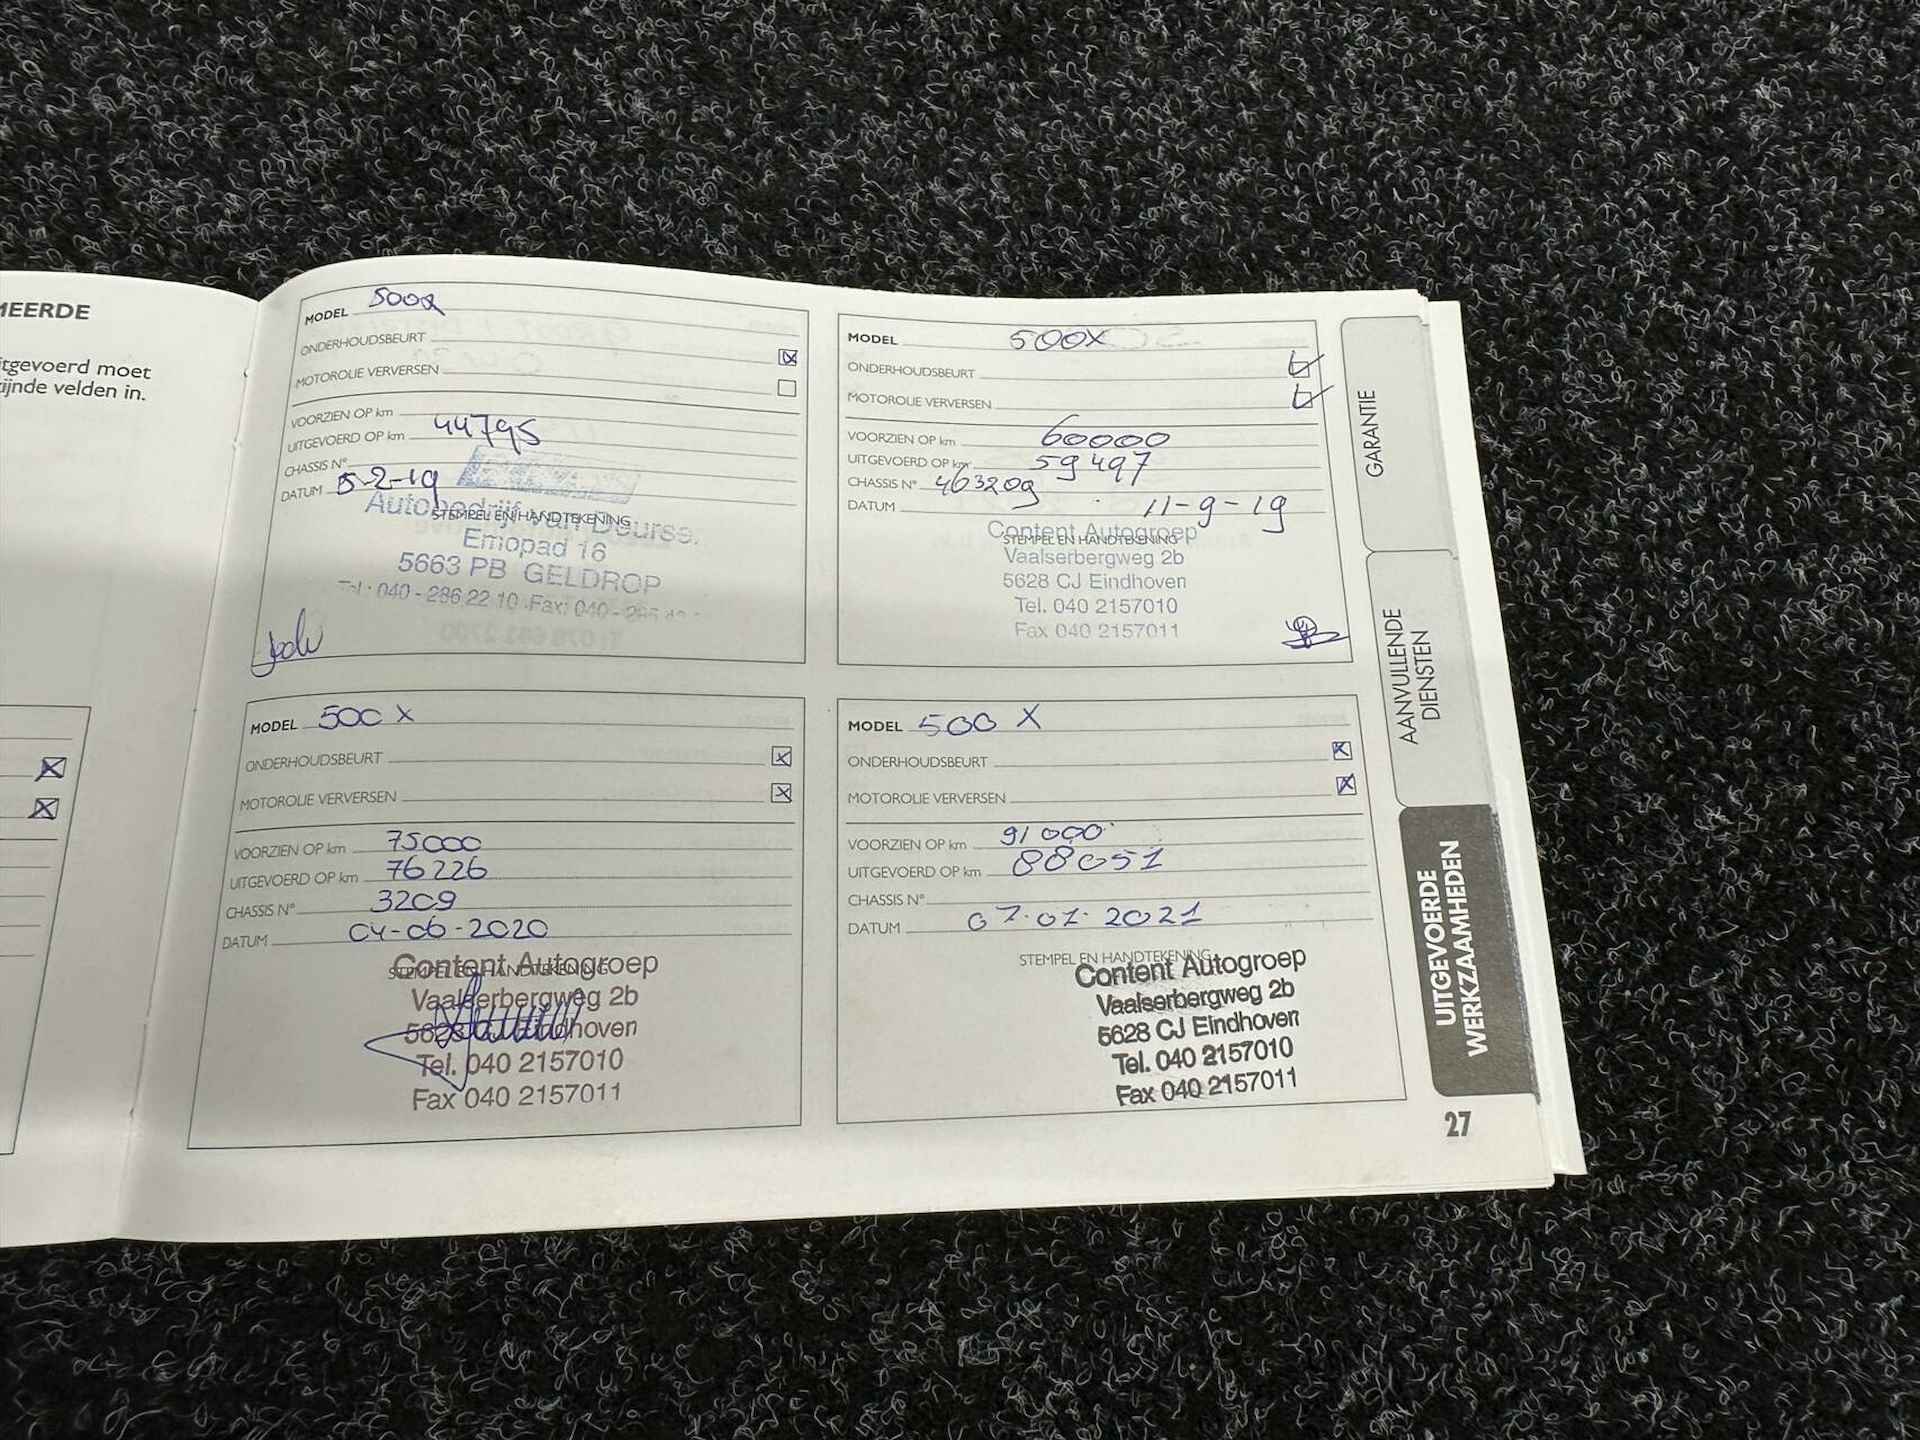 MEERDE
itgevoerd moet
ijnde velden in.
MODEL
ONDERHOUDSBEURT
MOTOROLIE VERVERSEN
VOORZIEN OP km
UITGEVOERD OP km 44795
CHASSIS N°
DATUM 5-2-19
STEMPEL EN HANDTEKENING
Autobedrijf van Deurse
Emopad 16
5663 PB GELDROP
Tel.: 040 - 286 22 10 Fax: 040 -
MODEL 500X
ONDERHOUDSBEURT
MOTOROLIE VERVERSEN
VOORZIEN OP km 60000
UITGEVOERD OP km 59497
CHASSIS N° 463209
DATUM 11-9-19
STEMPEL EN HANDTEKENING
Content Autogroep
Vaalserbergweg 2b
5628 CJ Eindhoven
Tel. 040 2157010
Fax 040 2157011
MODEL 500 X
ONDERHOUDSBEURT
MOTOROLIE VERVERSEN
VOORZIEN OP km 75000
UITGEVOERD OP km 76226
CHASSIS N° 3209
DATUM 04-06-2020
STEMPEL EN HANDTEKENING
Content Autogroep
Vaalserbergweg 2b
5628 CJ Eindhoven
Tel. 040 2157010
Fax 040 2157011
MODEL 500 X
ONDERHOUDSBEURT
MOTOROLIE VERVERSEN
VOORZIEN OP km 91000
UITGEVOERD OP km 88051
CHASSIS N°
DATUM 07.01.2021
STEMPEL EN HANDTEKENING
Content Autogroep
Vaalserbergweg 2b
5628 CJ Eindhoven
Tel. 040 2157010
Fax 040 2157011
GARANTIE
AANVULLENDE
DIENSTEN
UITGEVOERDE
WERKZAAMHEDEN
27